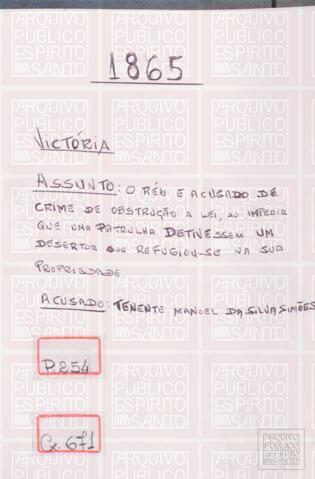 1865
VICTÓRIA
ASSUNTO: O RÉU E ACUSADO DE
CRIME DE OBSTRUÇÃO A LEI, AO IMPEDIR
QUE UMA PATRULHA DETIVESSEM UM
DESERTOR QUE REFUGIOU-SE NA SUA
PROPRIEDADE.
ACUSADO: TENENTE MANOEL DA SILVA SIMÕES
P.254
Cx.671
ARQUIVO
PÚBLICO
ESPIRITO
SANTO